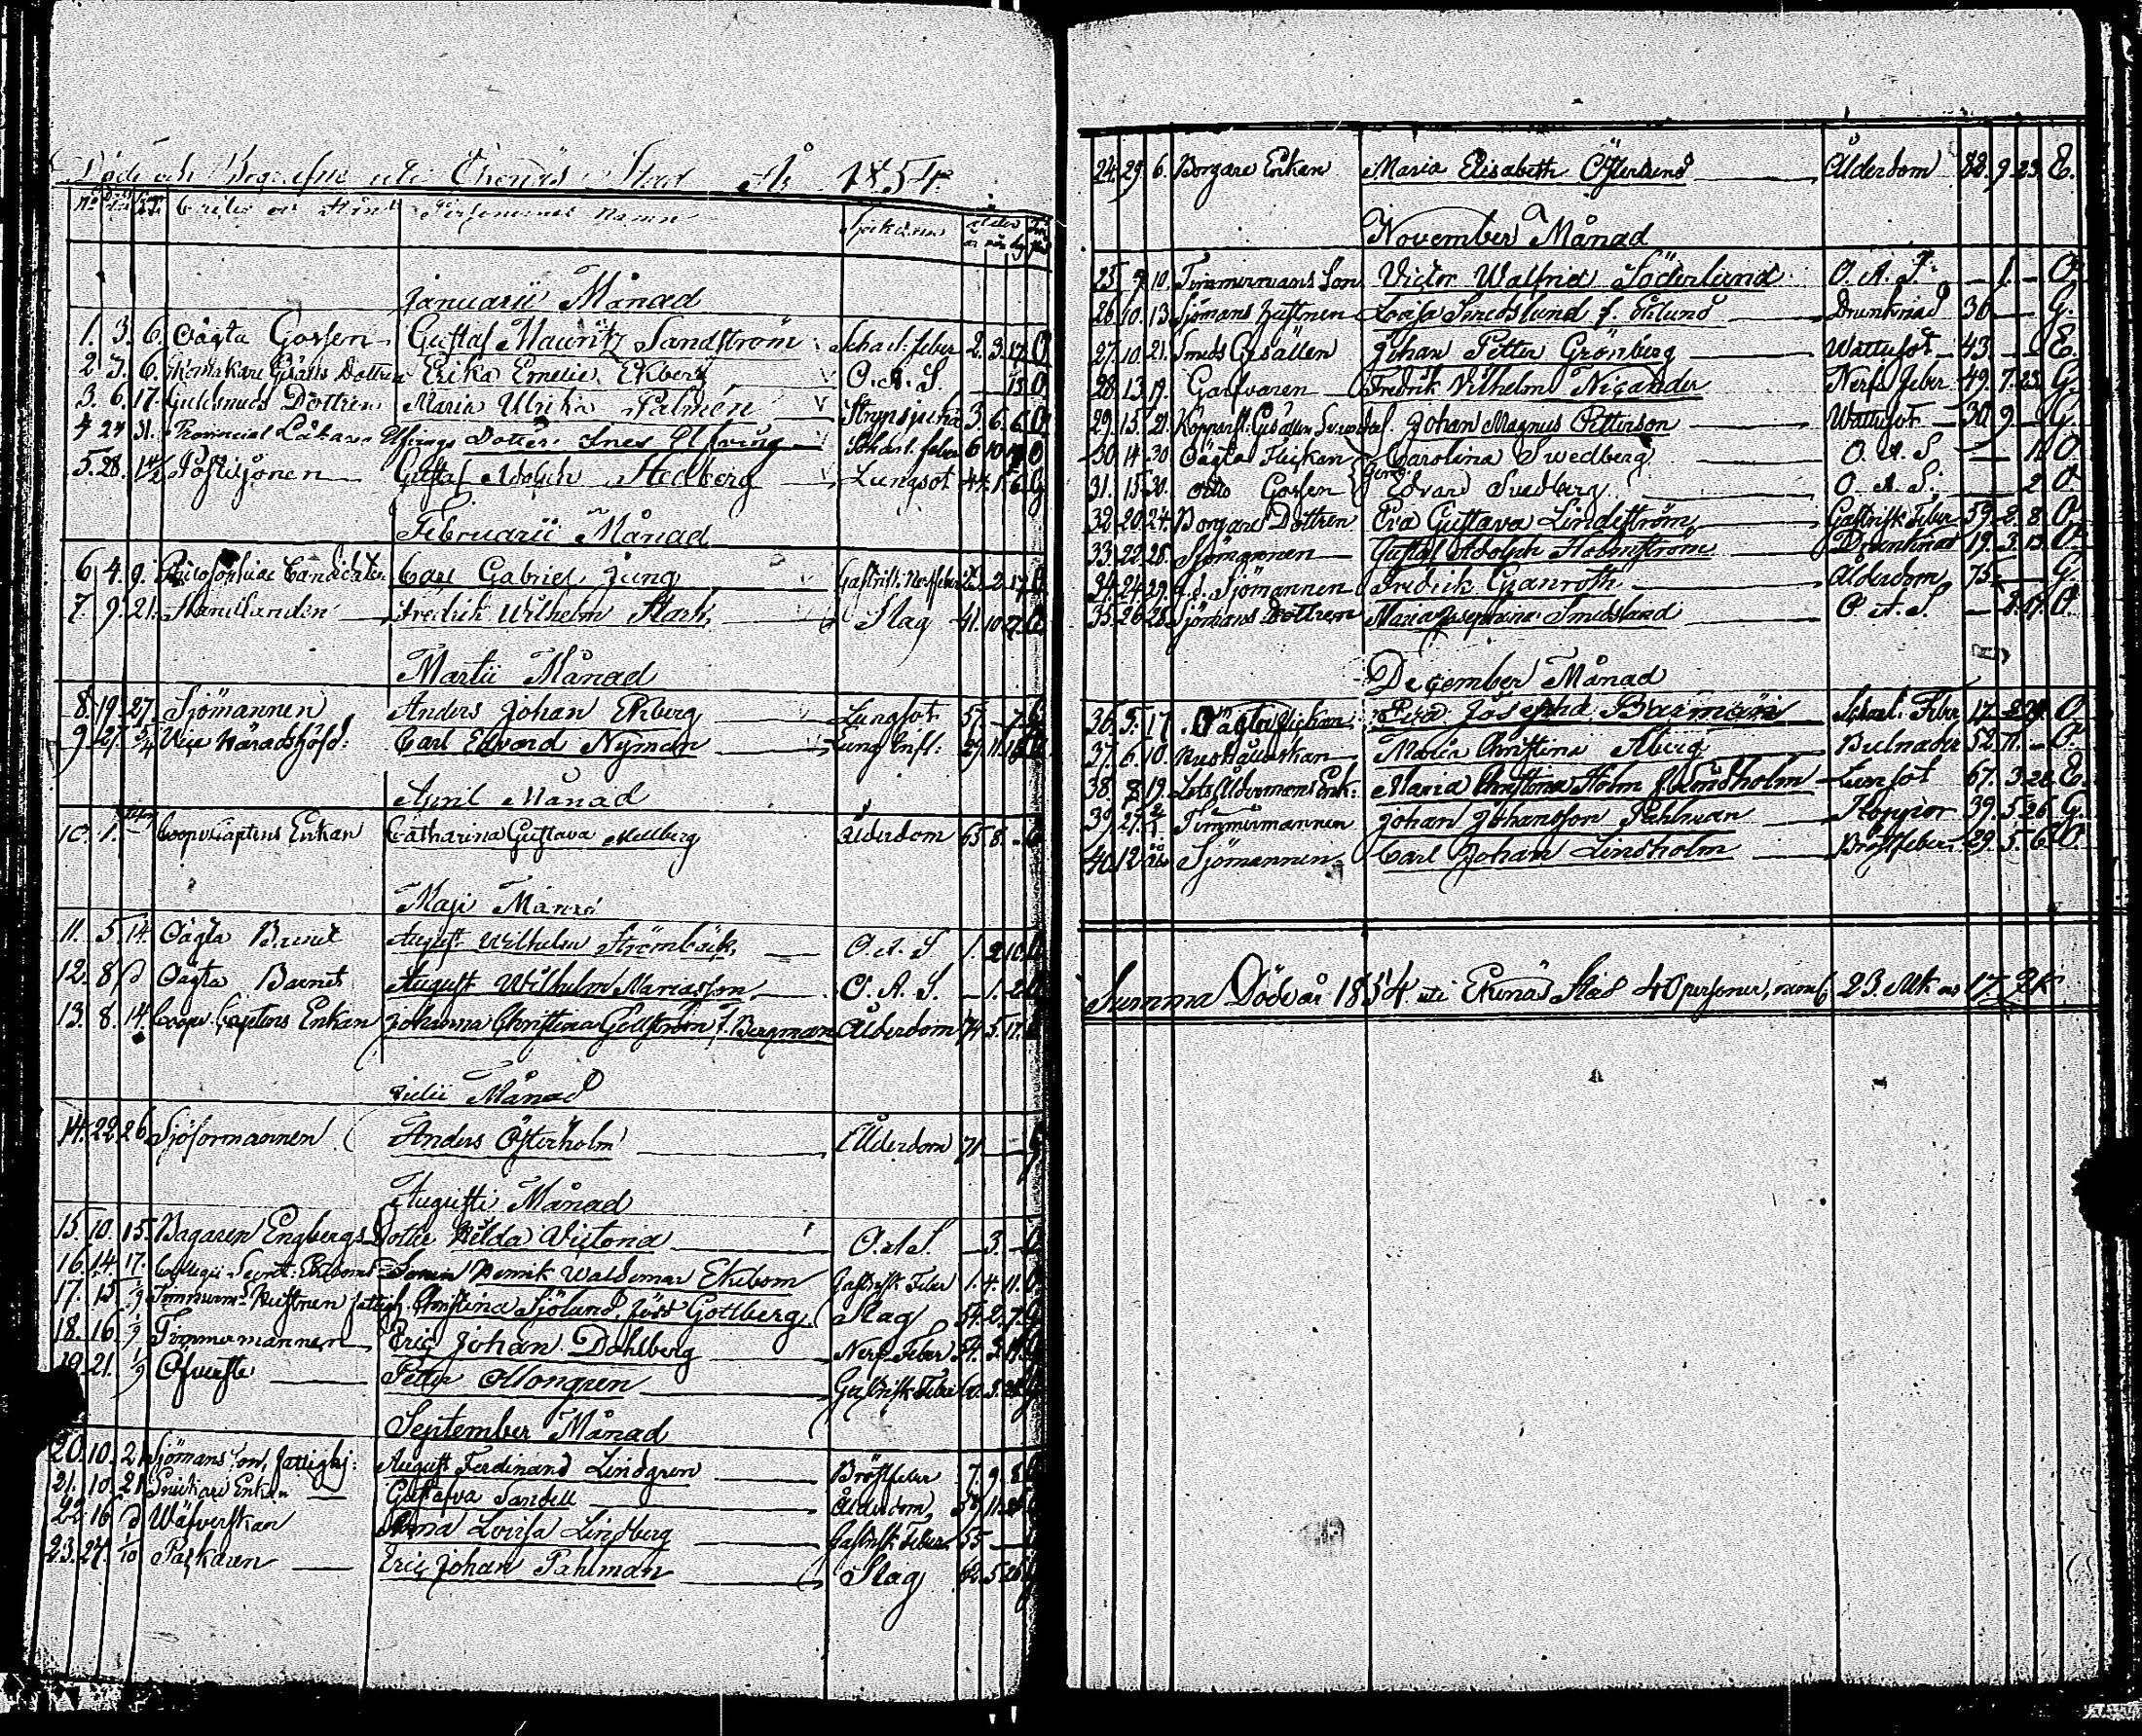 Döde och Begrafne uti Ekenäs Stad År 1854.
Personernas Namn Sjukdom
Januarii Månad
1. 3. 6. Oägta Gossen Gustaf Mauritz Sandström Scharl: feber 2. 3. 17. O
2. 3. 6. Dottren Erika Emelie Ekberg O. A. S. 13 O
3. 6. 17. Dottren Maria Ulrika Palmén Strypsjuka 3. 6. 6 O
4. 24. 31. Provincial Läkaren Elfvings Dotter Ines Elfving Scharl. feber 6 10 19 O
5. 28. Postiljonen Gustaf Adolph Stedberg Lungsot 44. 1. 6 G
Februarii Månad
6. 4. 9. Philosophiae Candidaten Carl Gabriel Jung Gastrisk Nerffeber 2. 17
7. 9. 21. Handlanden Fredrik Wilhelm Stark Slag 41. 10. 27.
Martii Månad
8. 19. 27. Sjömannen Anders Johan Ekberg Lungsot 57. 7. G
9. 27. 3/4 Vice Häradshöfd: Carl Edvard Nyman Lung Infl: 29. 11.
April Månad
10. 1. Coopv. Captens Enkan Catharina Gustava Mellberg Ålderdom 65. 8.
Maji Månad
11. 5. 14. Oägta Barnet August Wilhelm Strömbäck O. A. S 1. 2 10.
12. 8. d Oägta Barnet August Wilhelm Mariasson O. A. S. 1. 2
13. 8. 14. Coopv. Captens Enkan Johanna Christina Gellström f. Bergman Ålderdom 74. 5. 17.
Julii Månad
14. 22 26 Sjöformannen Anders Österholm Ålderdom 71 G
Augusti Månad
15. 10. 15. Bagaren Engbergs Dotter Hilda Victoria O. A S. 3.
16. 14. 17. Collegii Secret: Ekeboms Sonen Henrik Waldemar Ekebom Gastrisk Feber 1. 4. 11. O
17. 15. 1/9 Timmerm: Hustrun fattigh. Christina Sjölund, född Gottberg Slag 54. 2. 7. G
18. 16. 1/9 Timmermannen Eric Johan Dahlberg Nerf Feber 54. 3.
19. 21. 1/9 Öfverste Petter Mongren Gastrisk Feber
September Månad
20. 10. 21 Sjömans Son, fattighj: August Ferdinand Lindgren Bröstfeber 7. 9. 8
21. 10. 21. Snickare Enkan Gustafva Sandell Ålderdom
22. 16 d Wäfverskan Anna Lovisa Lindberg Gastrisk Feber 55
23. 27. 1/10 Packaren Eric Johan Pahlman Slag 62. 5. 26
24. 29 6. Borgare Enkan Maria Elisabeth Österlund Ålderdom 88. 9. 23. E.
November Månad
25 9 10. Timmermans Son Victor Walfrid Söderlund O. A. S. 1. O
26. 10. 13 Sjömans Hustrun Lovisa Smedslund f. Eklund Drunknad 36 G.
27. 10. 21. Smeds Gesällen Johan Petter Grönberg Wattusot 43. E.
28. 13. 19. Garfvaren Fredrik Wilhelm Nicander Nerf Feber 49. 7. 23 G.
29. 15. 21. Kopparsl: Gesällen Johan Magnus Petterson Wattusot 30 9 G.
30 14 30 Oägta Flickan Carolina Swedberg O. A. S 1 O.
31. 15 30. Dito Gossen Edvard Svedberg O A. S. 2 O
32. 20. 24. Borgares Dottren Eva Gustava Lindström Gastrisk Feber 39. 2. 8. O
33. 22. 28. Sjömannen Gustaf Adolph Holmström Drunknad 19. 3. 13. O.
34. 24. 29. f. d. Sjömannen Fredrik Granroth Ålderdom 75. G.
35. 26. 28. Sjömans Dottren Maria Josephina Smedslund O A. S. 3. 17. O.
December Månad
36. 5. 17. Oägta flickan Josepha Scharl. Feber 17. O
37. 6. 10. Hushållerskan Maria Christina Åberg Bulnader 52. 11. O.
38. 8. 19. Lots Åldermans Enk: Maria Christina Holm f. Lindholm Lunsot 67. 3. 26. E.
39. 27. 2/1 Timmermannen Johan Johansson Pahlman Koppor 39. 5. 26. G.
40. 12 Sjömannen Carl Johan Lindholm Bröstfeber 29. 5. 6 O.
Summa Döde år 1854 uti Ekenäs Stad 40 personer, neml. 23. Mk och 17. Qk